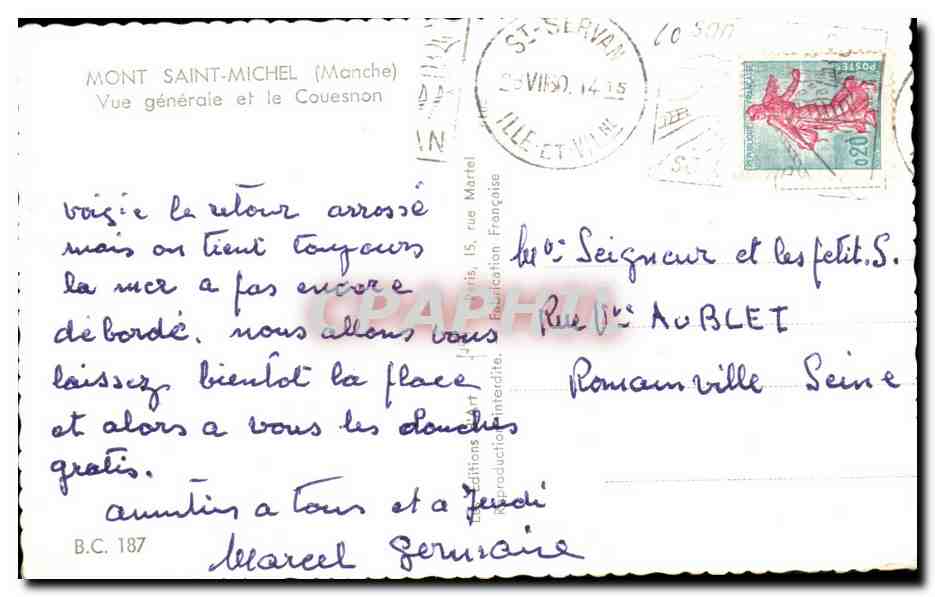 MONT SAINT-MICHEL (Manche)
Vue générale et le Couesnon
voici le retour arrossé
mais on tient toujours
la mer a pas encore
débordé. nous allons vous
laissez bientôt la place
et alors a vous les douches
gratis.
a tous et a Jeudi
Marcel Germaine
B.C. 187
Les Editions d'Art Paris, 15, rue Martel
Reproduction interdite. Fabrication Française
ST-SERVAN
14
ILLE-ET-VILNE
POSTES
REPUBLIQUE FRANÇAISE
0,20
Seigneur et les petit. S.
Rue Vve AUBLET
Romainville Seine
CPAPHIL